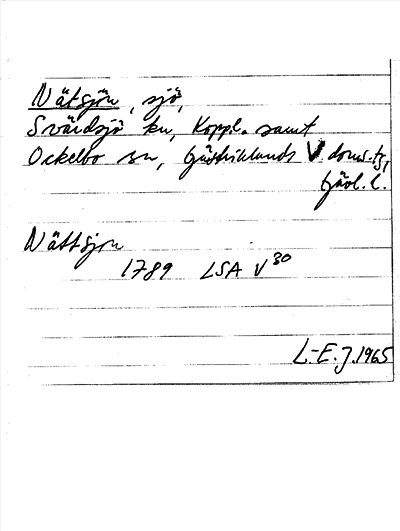 Nätsjön, sjö,
Svärdsjö kn, Koppl. samt
Ockelbo sn, Gästriklands V doms.-tg,
Gävl. l.
Nättsjon
1789 LSA V30
L.-E. J. 1965